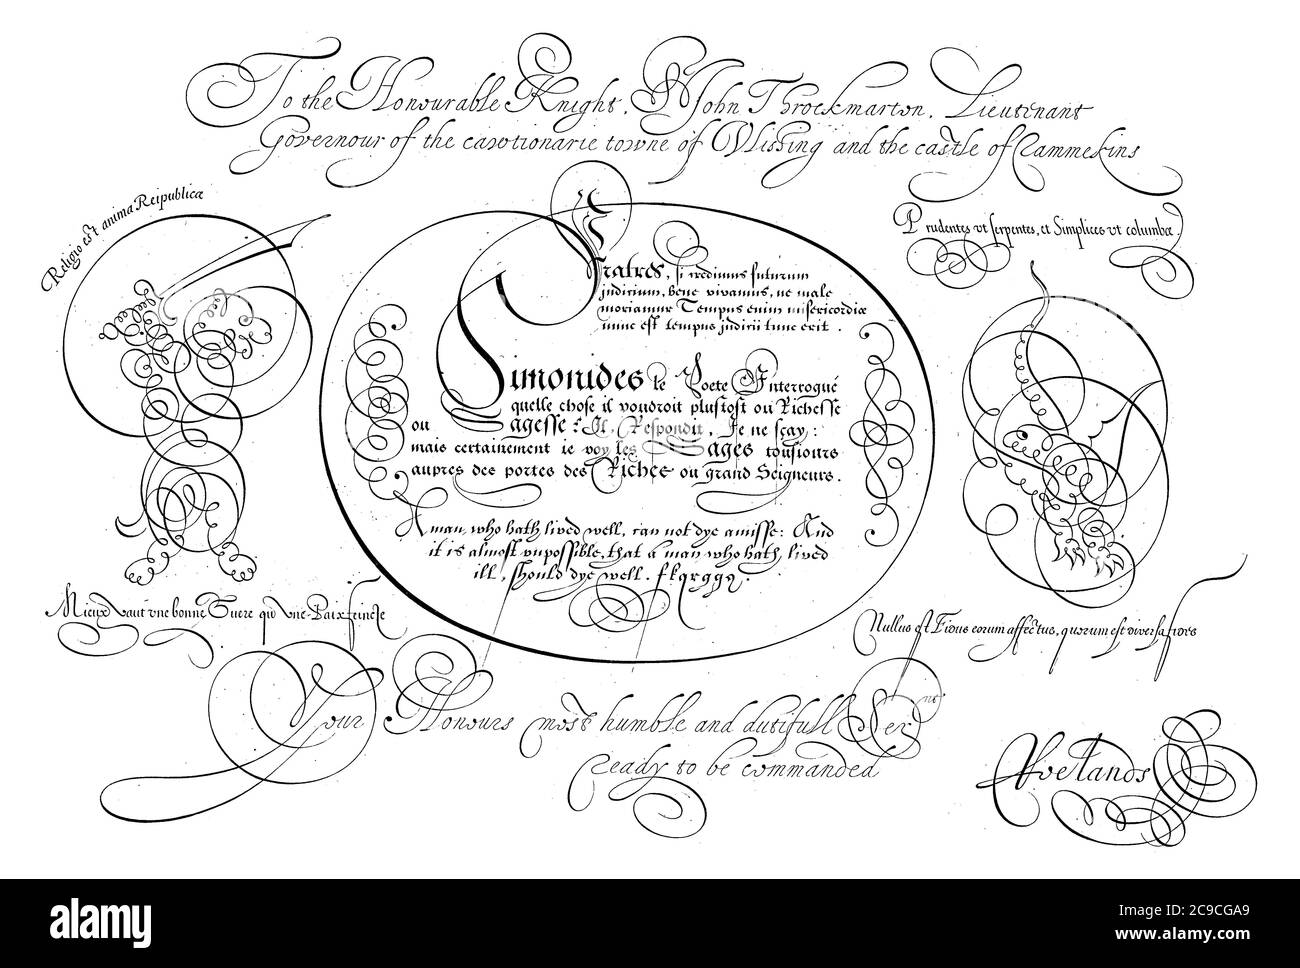 To the Honourable Knight, Sr John Throckmarton, Lieutenant
Governour of the cawtionarie towne of Vlissing and the castle of Rammekins
Religio est anima Reipublicæ
Prudentes ut serpentes, et Simplices vt columbæ
Fratres, si credimus futurum
judicium, bene vivamus, ne male
moriamur Tempus enim misericordiæ
nunc est tempus judicii tunc erit.
Simonides le Poete Interroqué
quelle chose il voudroit plustost ou Richesse
ou Sagesse: Il Respondit, Je ne sçay:
mais certainement ie voy les Sages tousiours
aupres des portes des Riches ou grand Seigneurs.
A man, who hath lived well, can not dye amisse: And
it is almost vnpossible, that a man who hath lived
ill, should dye well.
Mieux vaut vne bonne Guere qu vne Paix feincte
Nullus est Fidus eorum affectus, quorum est diversa fides
Your Honours most humble and dutifull Servnt
ready to be commanded
alamy
Image ID: 2C9CGA9
www.alamy.com